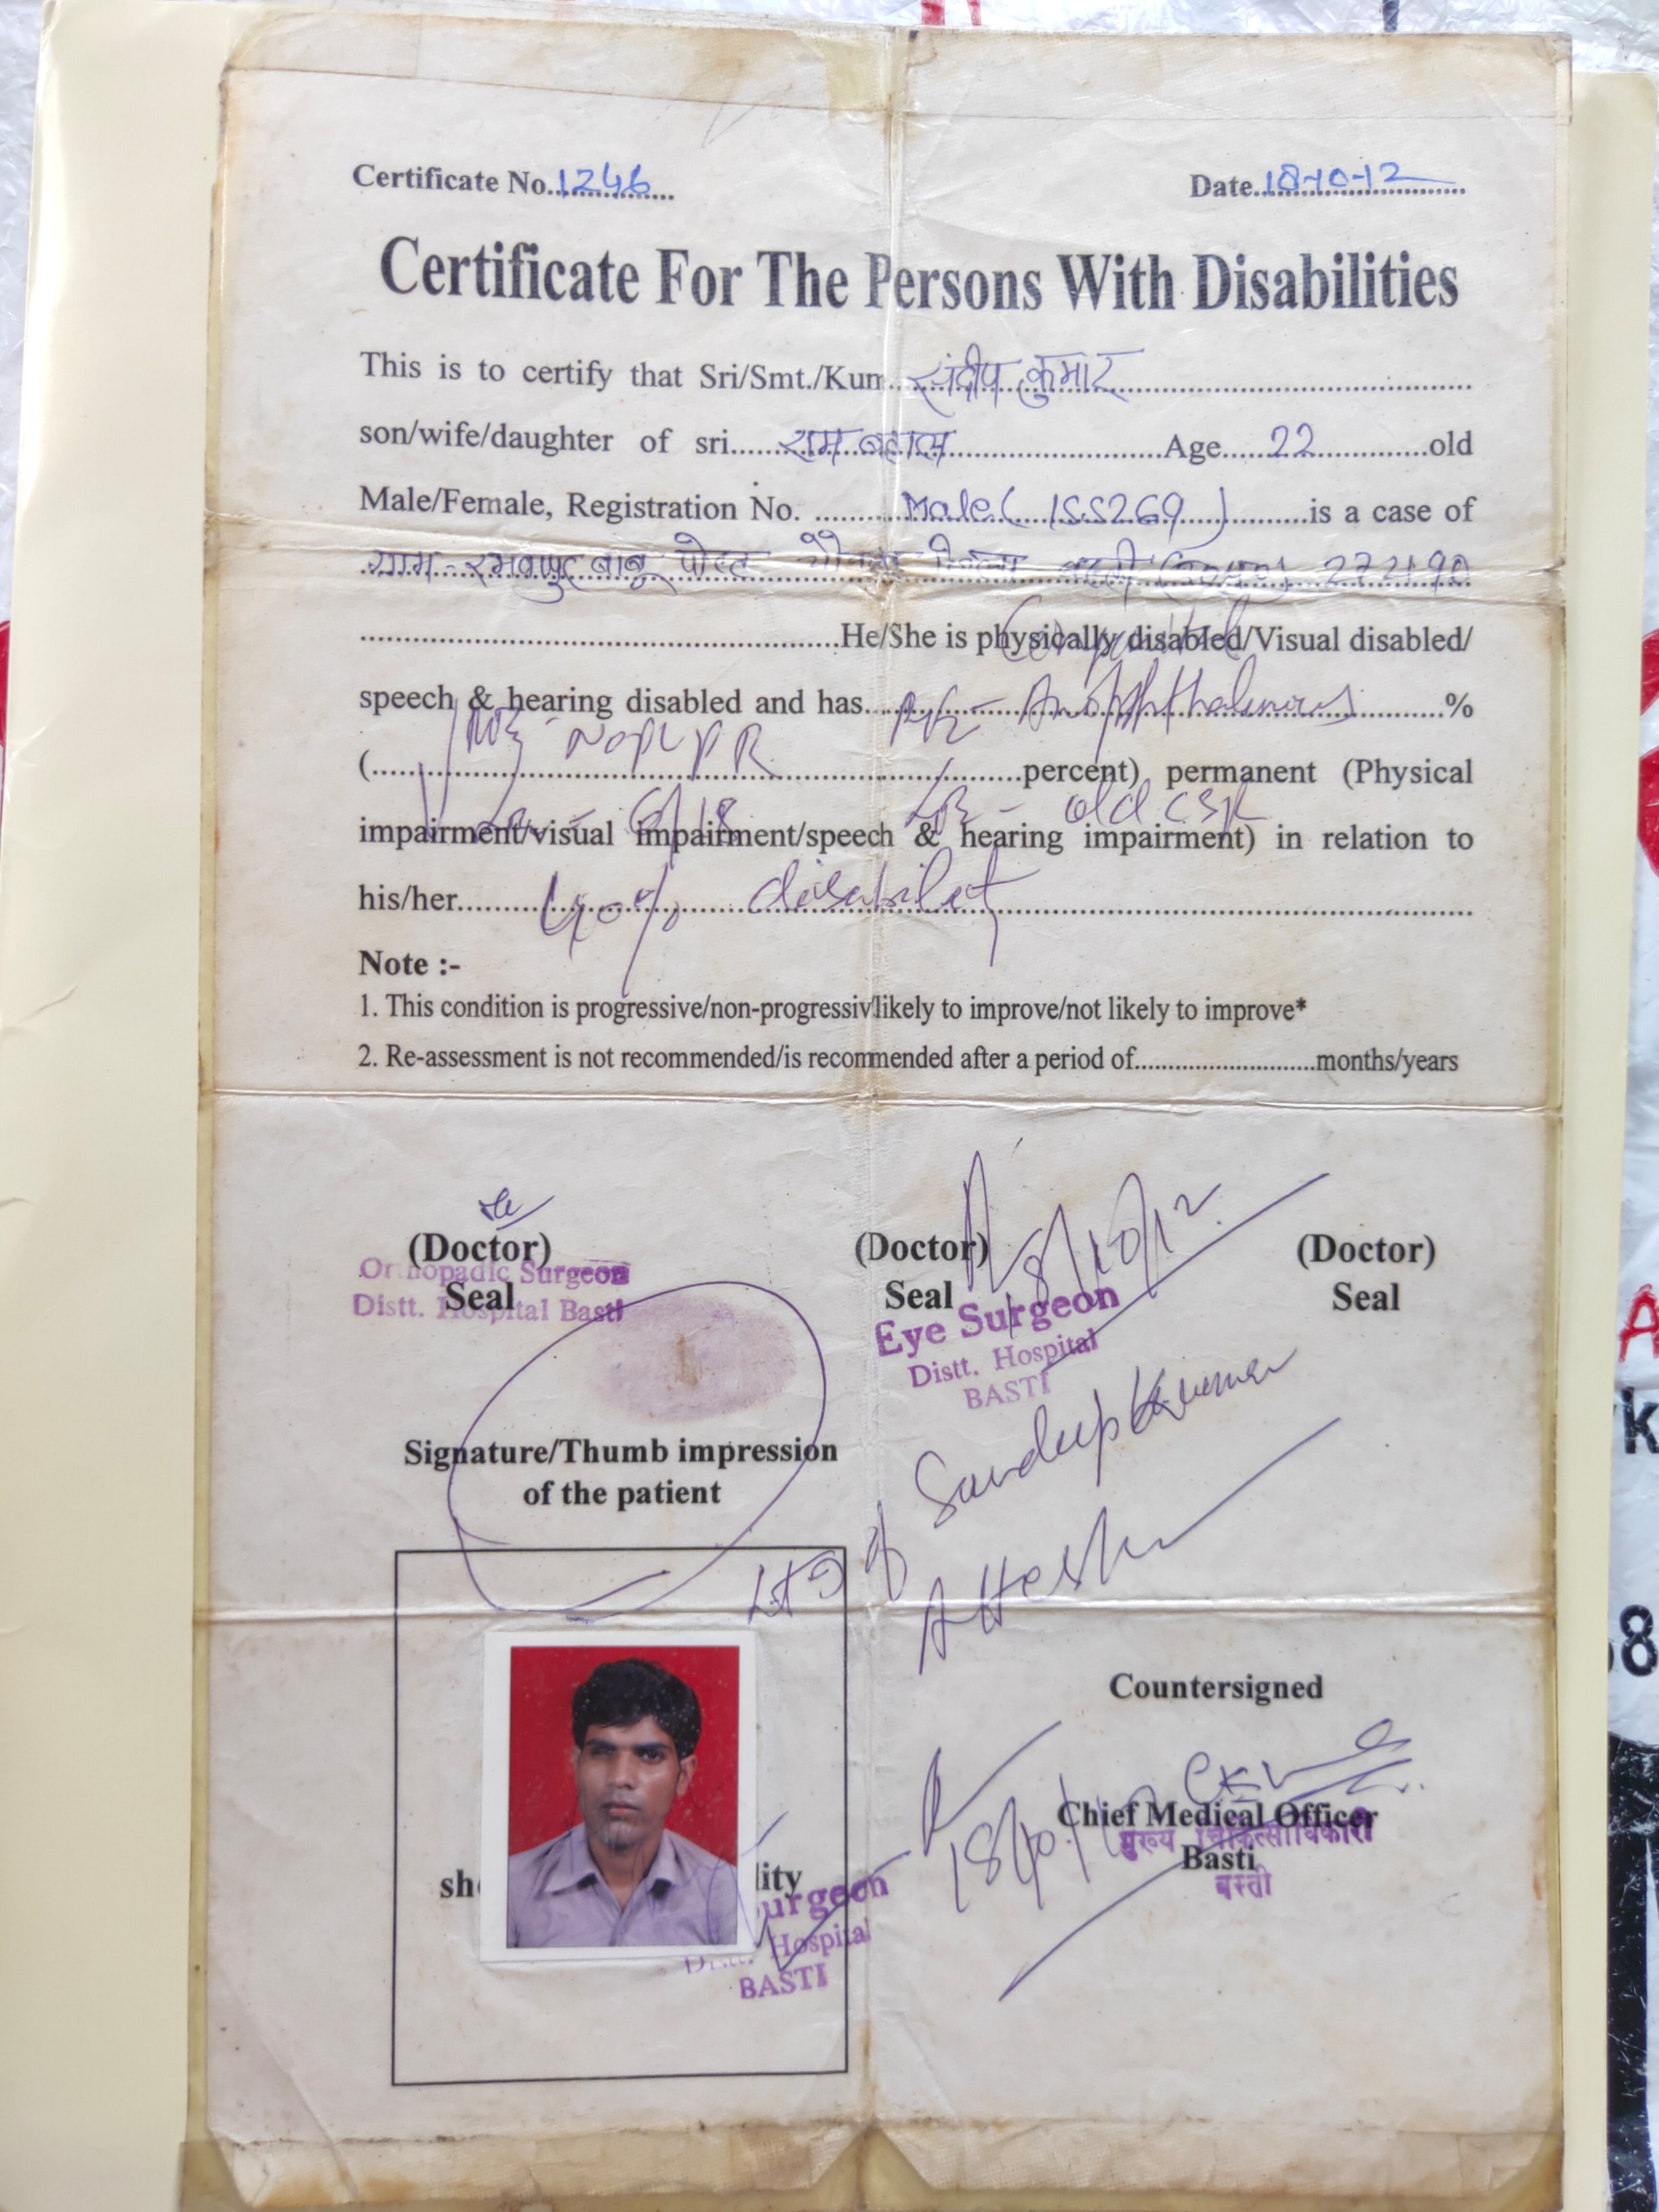 Certificate No. 1246 Date 18-10-12
Certificate For The Persons With Disabilities
This is to certify that Sri/Smt./Kum. संदीप कुमार
son/wife/daughter of sri राम Age 22 old
Male/Female, Registration No. Male ( 155269 ) is a case of
ग्राम - बाबू पोस्ट
He/She is physically disabled/Visual disabled/
speech & hearing disabled and has RE - Anophthalmous %
( percent) permanent (Physical
6/18 LE - old
impairment/visual impairment/speech & hearing impairment) in relation to
his/her 40% disabilit
Note :-
1. This condition is progressive/non-progressiv/likely to improve/not likely to improve*
2. Re-assessment is not recommended/is recommended after a period of months/years
18/10/12
(Doctor) (Doctor) (Doctor)
Seal Seal Seal
Orthopadic Surgeon
Distt. Hospital Basti
Eye Surgeon
Distt. Hospital
BASTI
Signature/Thumb impression
of the patient
LTI of Sandeep Kumar
Countersigned
18/10/12
Chief Medical Officer
मुख्य चिकित्साधिकारी
Basti
बस्ती
sh lity
urgeon
Hospital
BASTI